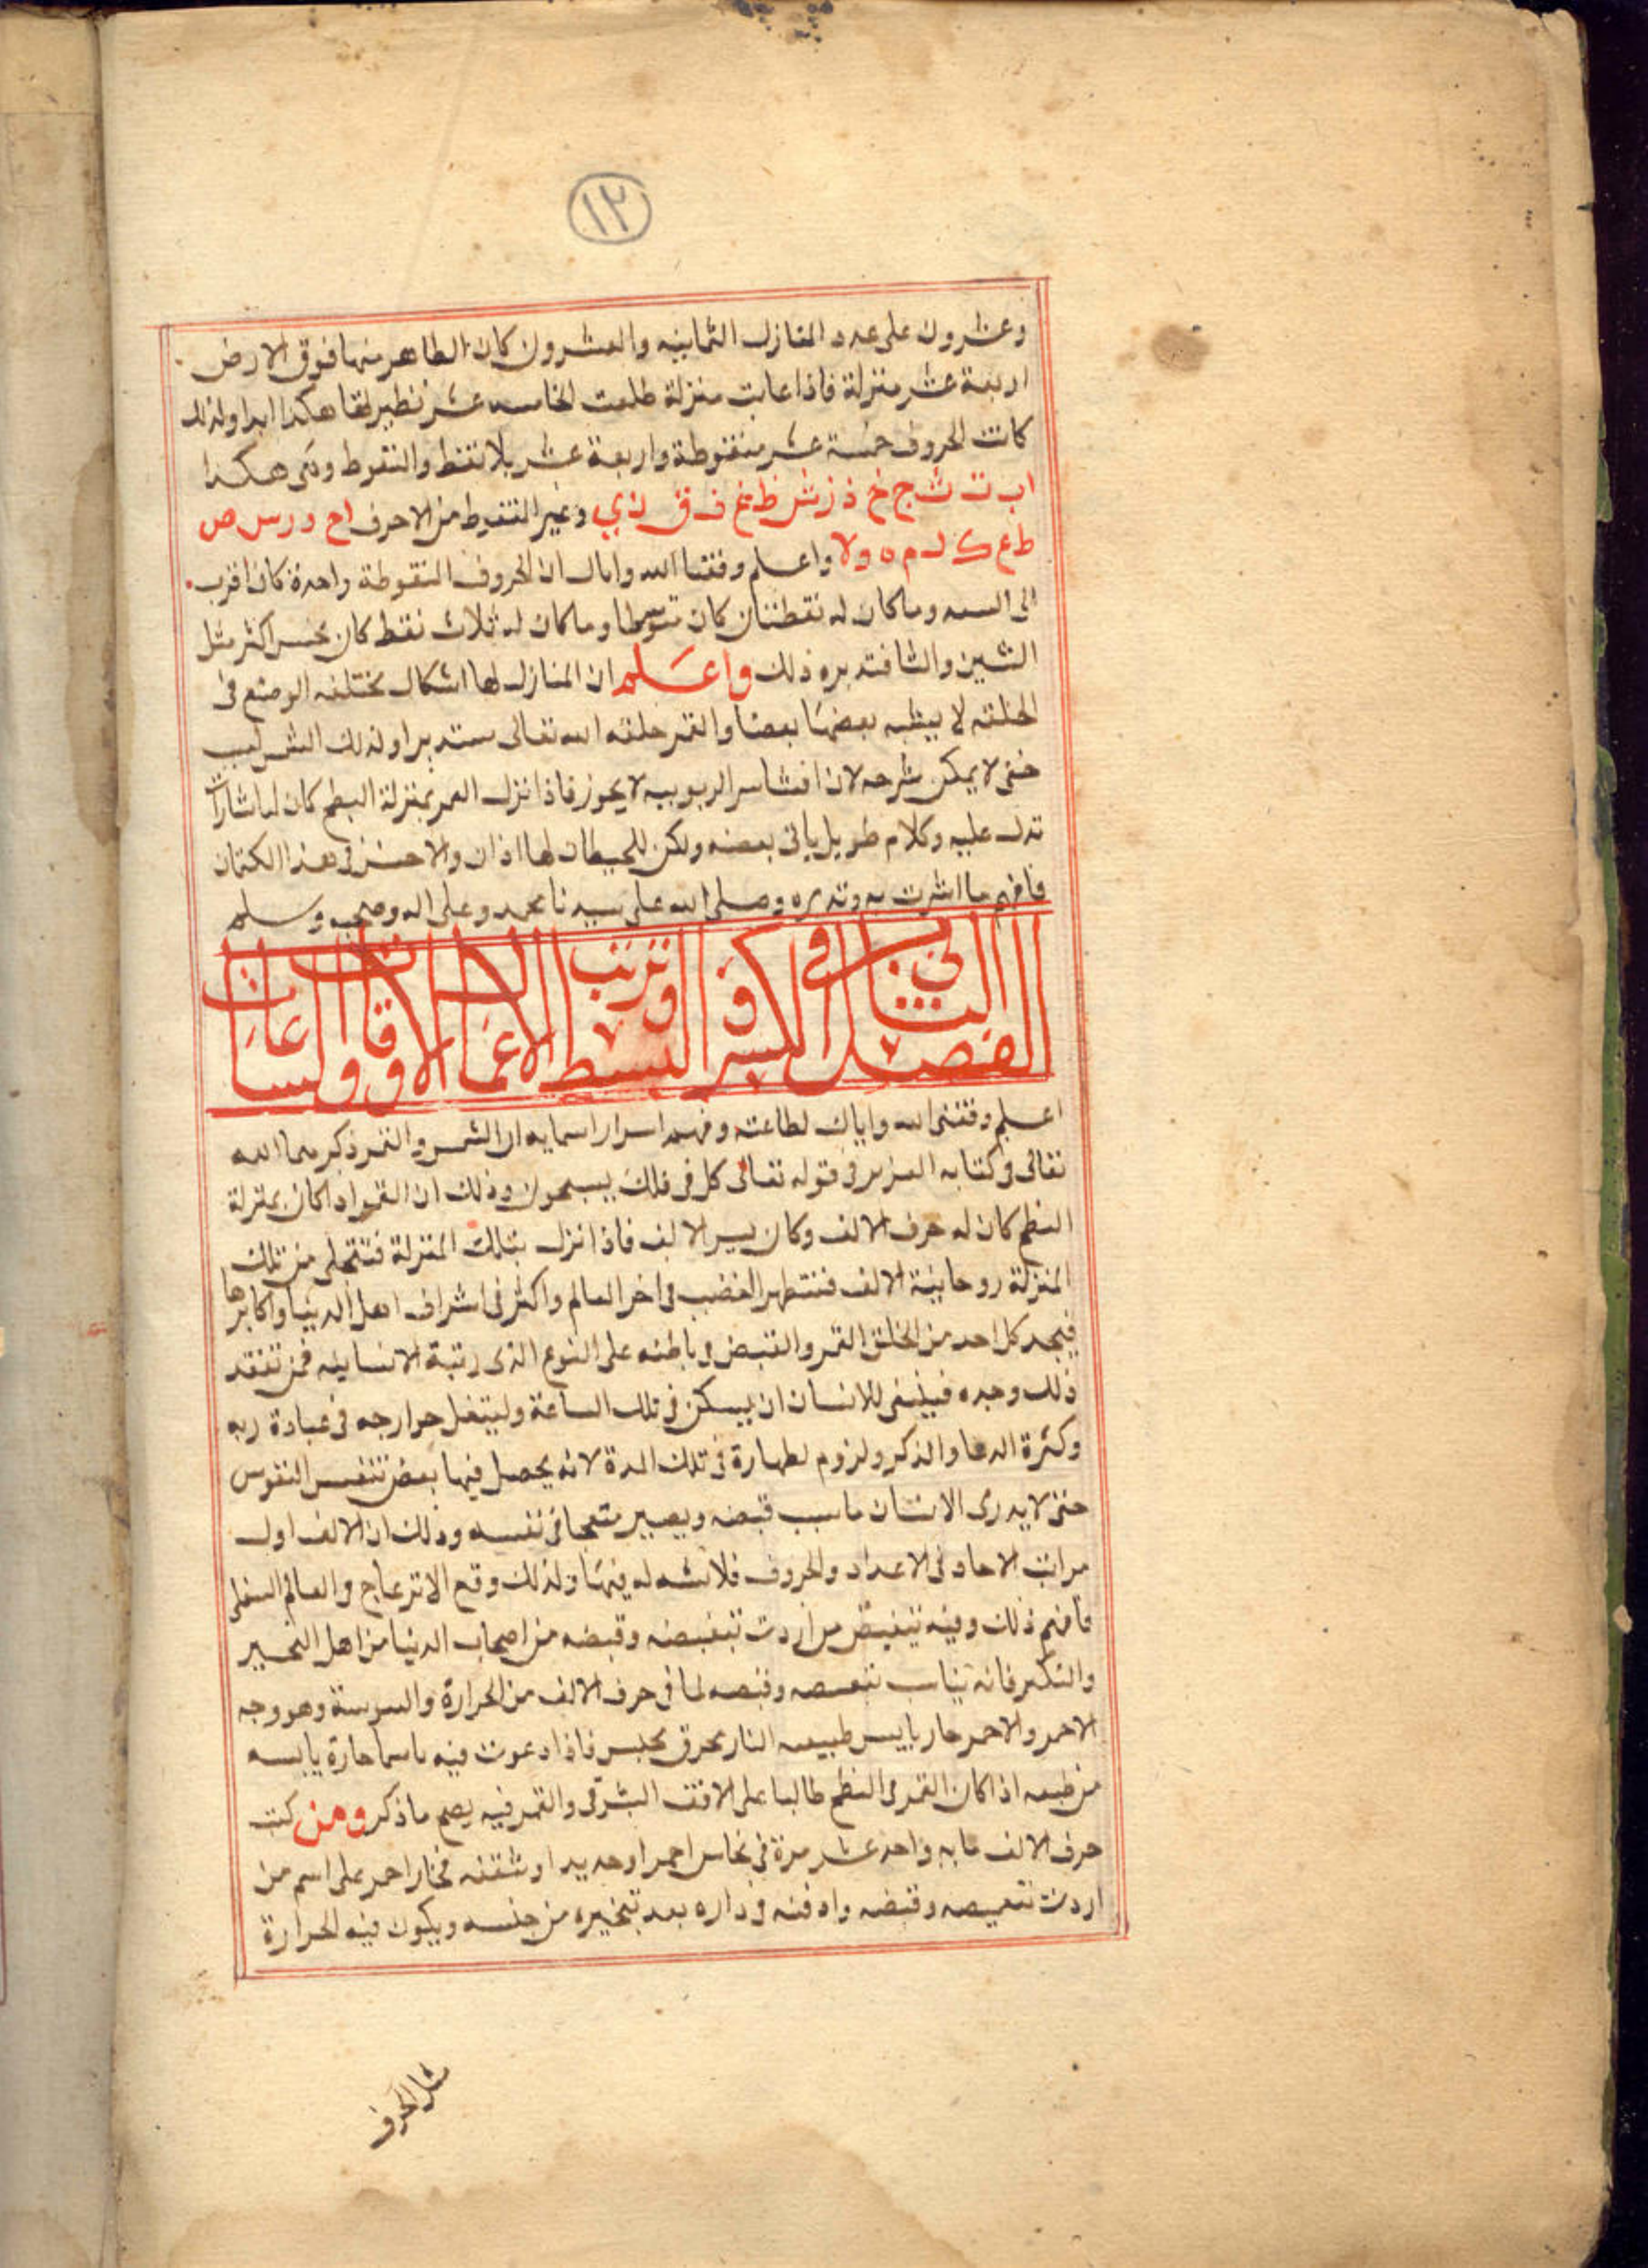 ١٢
وعشرون على عدد المنازل الثمانيه والعشرون كان الطاهر منها فوق الارض
اربعة عشر منزلة فاذا غابت منزلة طلعت الخامسه عشر نظيرتها هكذا ابدا ولذلك
كانت الحروف خمسة عشر منقوطة واربعة عشر بلا نقط والمنقوط وهى هكذا
اب ت ث ج خ ذ ز ش ظ غ ف ق ن ي وغير المنقوط من الاحرف اح د ر س ص
ط ع ك ل م ه و لا واعلم وفقنا الله واياك ان الحروف المنقوطة واحدة كان اقرب
الى السعد وما كان له نقطتان كان متوسطا وما كان له ثلاث نقط كان نحس اكثر مثل
الشين والثا فتدبره ذلك واعلم ان المنازل لها اشكال مختلفه الوضع فى
الخلقه لا يشبه بعضها بعضا والقمر خلقه الله تعالى مستديرا ولذلك
خفى لا يمكن شرحه لان افشا سر الربوبيه لا يجوز فاذا نزل القمر بمنزلة النطح كان لها اشارات
تدل عليه وكلام طويل ياتى بعضه ولكن للحيطان لها اذان والاحسن فى هذا الكتمان
فافهم ما اشرت به وتدبره وصلى الله على سيدنا محمد وعلى اله وصحبه وسلم
الفصل الثانى فى الكسر والبسط وترتيب الاعمال الاوقات والساعات
اعلم وفقنى الله واياك لطاعته وفهم اسرار اسمايه ان الشمس والقمر ذكرهما الله
تعالى فى كتابه العزيز فى قوله تعالى كل فى فلك يسبحون وذلك ان القمر اذا كان بمنزلة
النطح كان له حرف الالف وكان يسير الالف فاذا نزل بتلك المنزلة فتتجلى من تلك
المنزلة روحانية الالف فتظهر الغضب فى اخر العالم واكثر فى اشراف اهل الدنيا واكابرها
فيجد كل احد من الخلق القهر والقبض فى باطنه على النوع الذى رتبة الانسانيه فمن تفقد
ذلك وجده فينبغى للانسان ان يسكن فى تلك الساعة وليشغل جوارحه فى عبادة ربه
وكثرة الدعا والذكر ولزوم لطهارة فى تلك المدة لانه يحصل فيها بعض النفوس
حتى لا يدرى الانسان ما سبب قبضه ويصير متعجا فى نفسه وذلك ان الالف اول
مراتب الاحاد فى الاعداد والحروف فلا له فيها ولذلك وقع الانزعاج والعالم السفلى
فافهم ذلك وفيه من اردت وقبضه من اصحاب الدنيا من اهل
والتكبر فانه وقبضه لما فى حرف الالف من الحرارة واليبوسة وهو وجه
الاحمر والاحمر حار يابس طبيعه النار محرق نحس فاذا دعوت فيه باسما حارة يابسه
من طبعه اذا كان القمر فى النطح طالبا على الافق الشرقى والقمر فيه يصح ما ذكر ومن كتب
حرف الالف مايه واحد عشر مرة فى نحاس احمر او حديد او شقفه فخار احمر على اسم من
اردت وقبضه وادفنه فى داره بعد تبخيره من جنسه ويكون فيه الحرارة
مثل الحرف